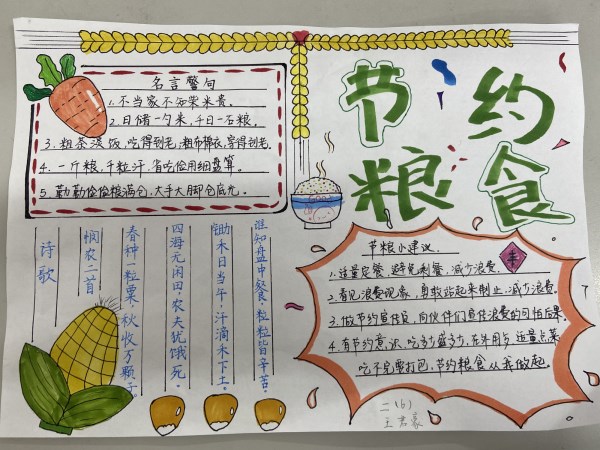 节约
粮食
名言警句
1.不当家不知柴米贵。
2.日储一勺米,千日一石粮。
3.粗茶淡饭,吃得到老;粗布棉衣,穿得到老。
4.一斤粮,千粒汗,省吃俭用细盘算。
5.勤勤俭俭粮满仓,大手大脚仓底光。
诗歌
悯农二首
春种一粒粟,秋收万颗子。
四海无闲田,农夫犹饿死。
锄禾日当午,汗滴禾下土。
谁知盘中餐,粒粒皆辛苦。
节粮小建议
1.适量定餐,避免剩餐,减少浪费。
2.看见浪费现象,勇敢站起来制止,减少浪费。
3.做节约宣传员,向伙伴们宣传浪费的可怕后果。
4.有节约意识,吃多少盛多少,在外用点,适量点菜
吃不完要打包,节约粮食从我做起。
二(6)
王君豪